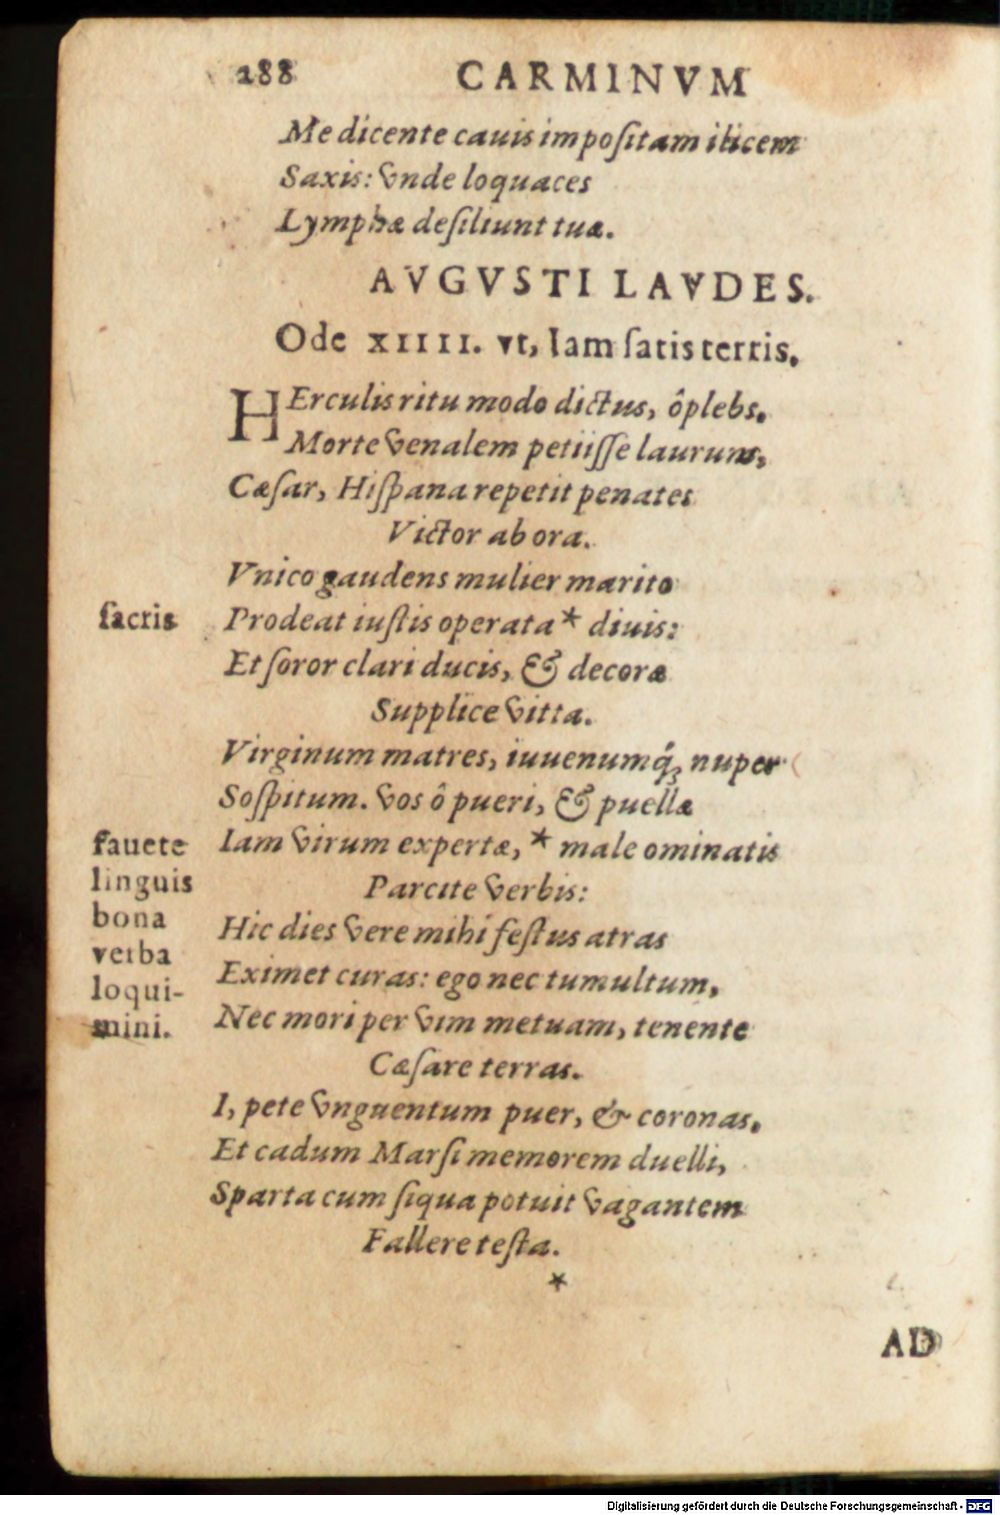 288 CARMINVM
Me dicente cauis impositam ilicem
Saxis: vnde loquaces
Lymphæ desiliunt tuæ.
AVGVSTI LAVDES.
Ode XIIII. vt, Iam satis terris.
HErculis ritu modo dictus, ô plebs.
Morte venalem petiisse laurum,
Cæsar, Hispana repetit penates
Victor ab ora.
Vnico gaudens mulier marito
sacris Prodeat iustis operata * diuis:
Et soror clari ducis, & decoræ
Supplice vitta.
Virginum matres, iuuenumq́; nuper
Sospitum. vos ô pueri, & puellæ
Iam virum expertæ, * male ominatis
Parcite verbis:
fauete
linguis
bona
verba
loqui-
mini.
Hic dies vere mihi festus atras
Eximet curas: ego nec tumultum,
Nec mori per vim metuam, tenente
Cæsare terras.
I, pete vnguentum puer, & coronas.
Et cadum Marsi memorem duelli,
Sparta cum siqua potuit vagantem
Fallere testa.
*
AD
Digitalisierung gefördert durch die Deutsche Forschungsgemeinschaft - DFG